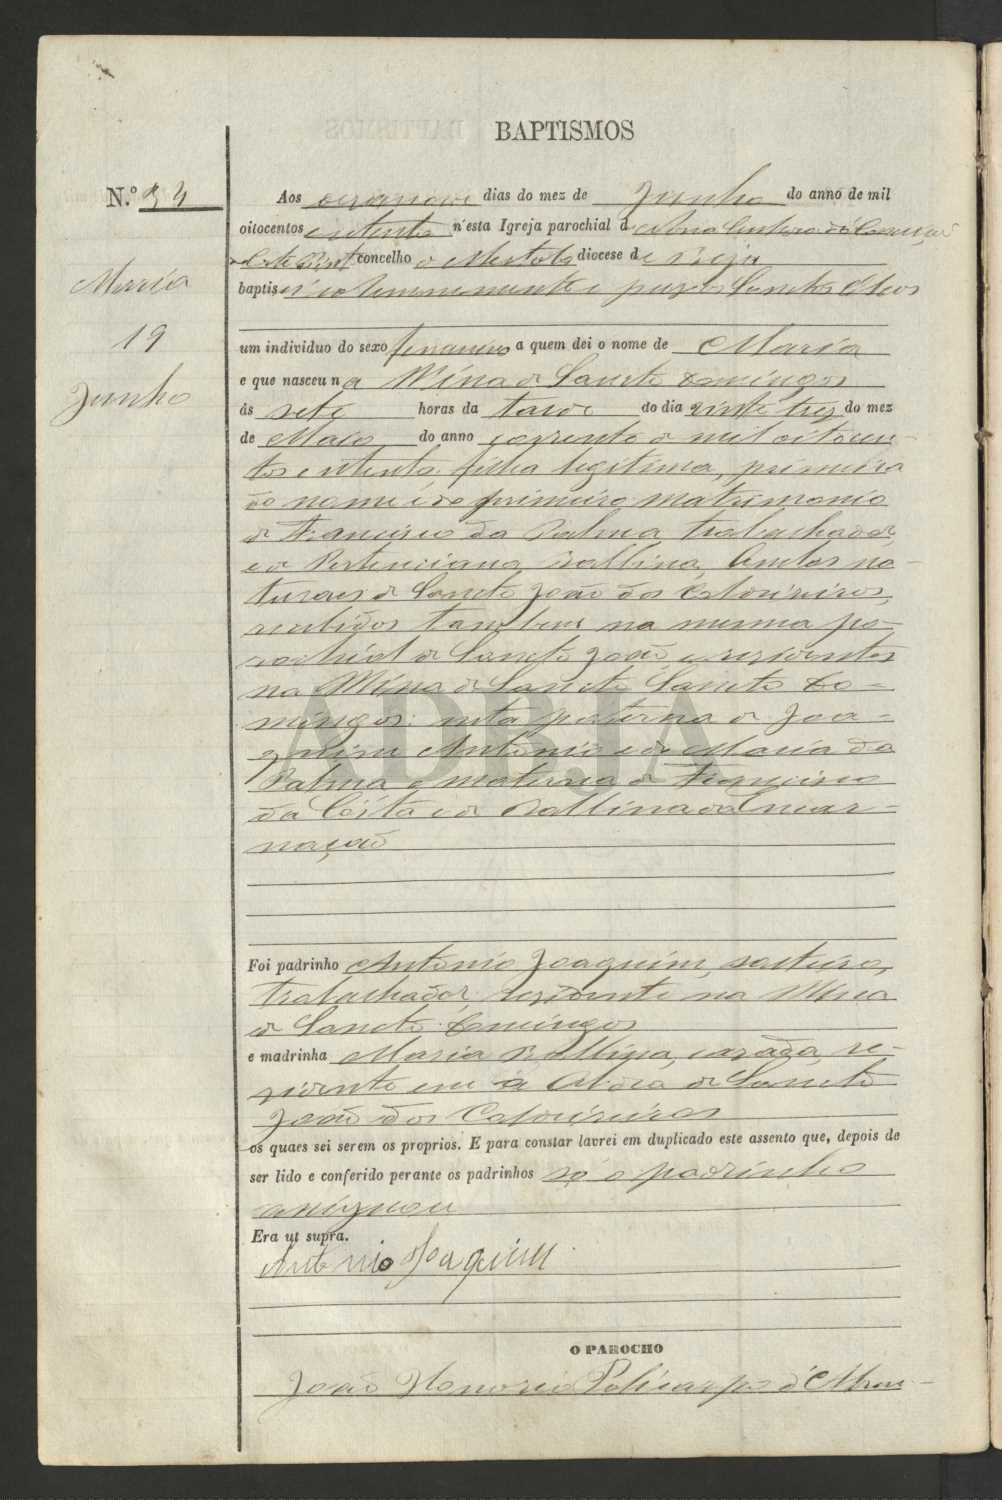 BAPTISMOS
N.º 34
Aos desanove dias do mez de Junho do anno de mil
oitocentos e oitenta n'esta Igreja parochial de Senhora da Conceição
concelho de Mertola diocese de Beja
baptisei solemnemente e puz os Sanctos Oleos
Maria
19
Junho
um individuo do sexo femenino a quem dei o nome de Maria
e que nasceu na Mina de Sancto Domingos
ás sete horas da tarde do dia vinte tres do mez
de Maio do anno corrente de mil oitocen-
tos e oitenta filha legitima, primeira
do nome e do primeiro matrimonio
de Francisco da Palma, trabalhador,
e de Balbina, Ambos na-
turaes de Sancto João dos Caldeireiros,
recebidos tambem na mesma pa-
rochial de Sancto João e residentes
na Mina de Sancto Sancto Do-
mingos: neta paterna de Joa-
quim Antonio e de Maria da
Palma e materna de Francisco
da Costa e de Balbina da Encar-
nação
ADBJA
Foi padrinho Antonio Joaquim, solteiro,
trabalhador, rezidente na Mina
de Sancto Domingos
e madrinha Maria Balbina, casada, re-
zidente em a Aldea de Sancto
João dos Caldeireiros
os quaes sei serem os proprios. E para constar lavrei em duplicado este assento que, depois de
ser lido e conferido perante os padrinhos só o padrinho
assignou
Era ut supra.
Antonio Joaquim
O PAROCHO
João Honorio Policarpo d'